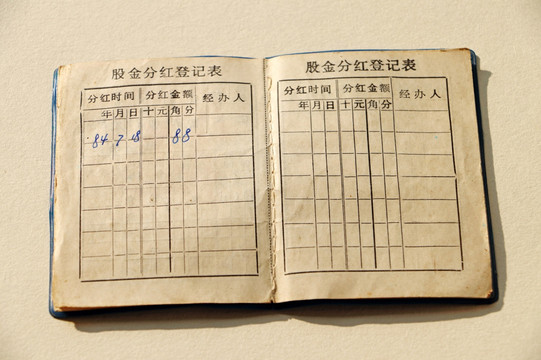 股金分红登记表
分红时间 分红金额 经办人
年月日 十元角分
84 7 18 88
股金分红登记表
分红时间 分红金额 经办人
年月日 十元角分